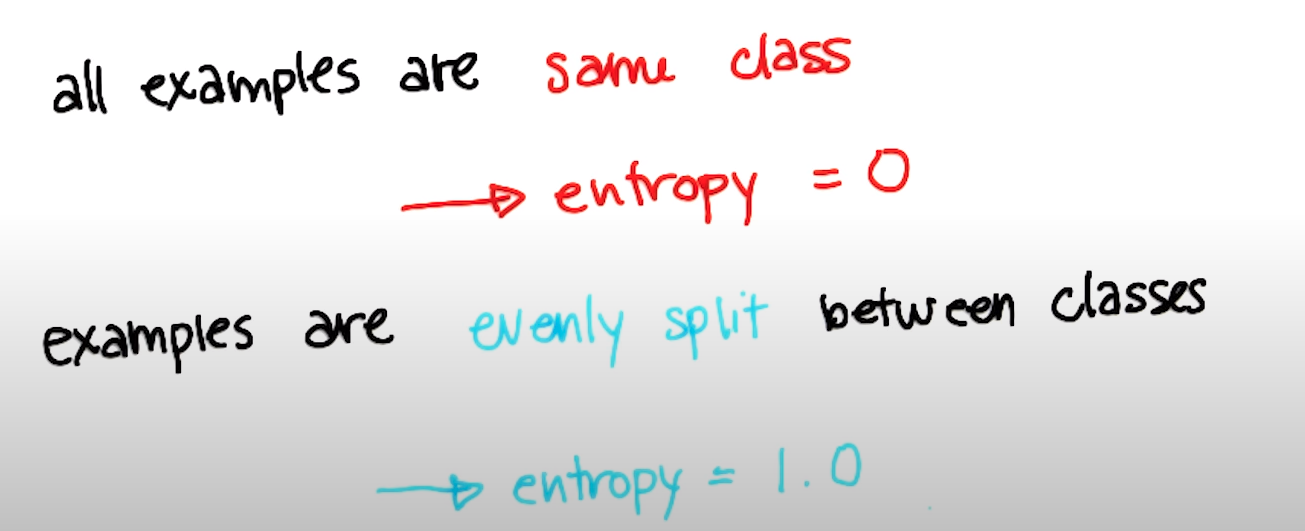 all examples are same class
→ entropy = 0
examples are evenly split between classes
→ entropy = 1.0